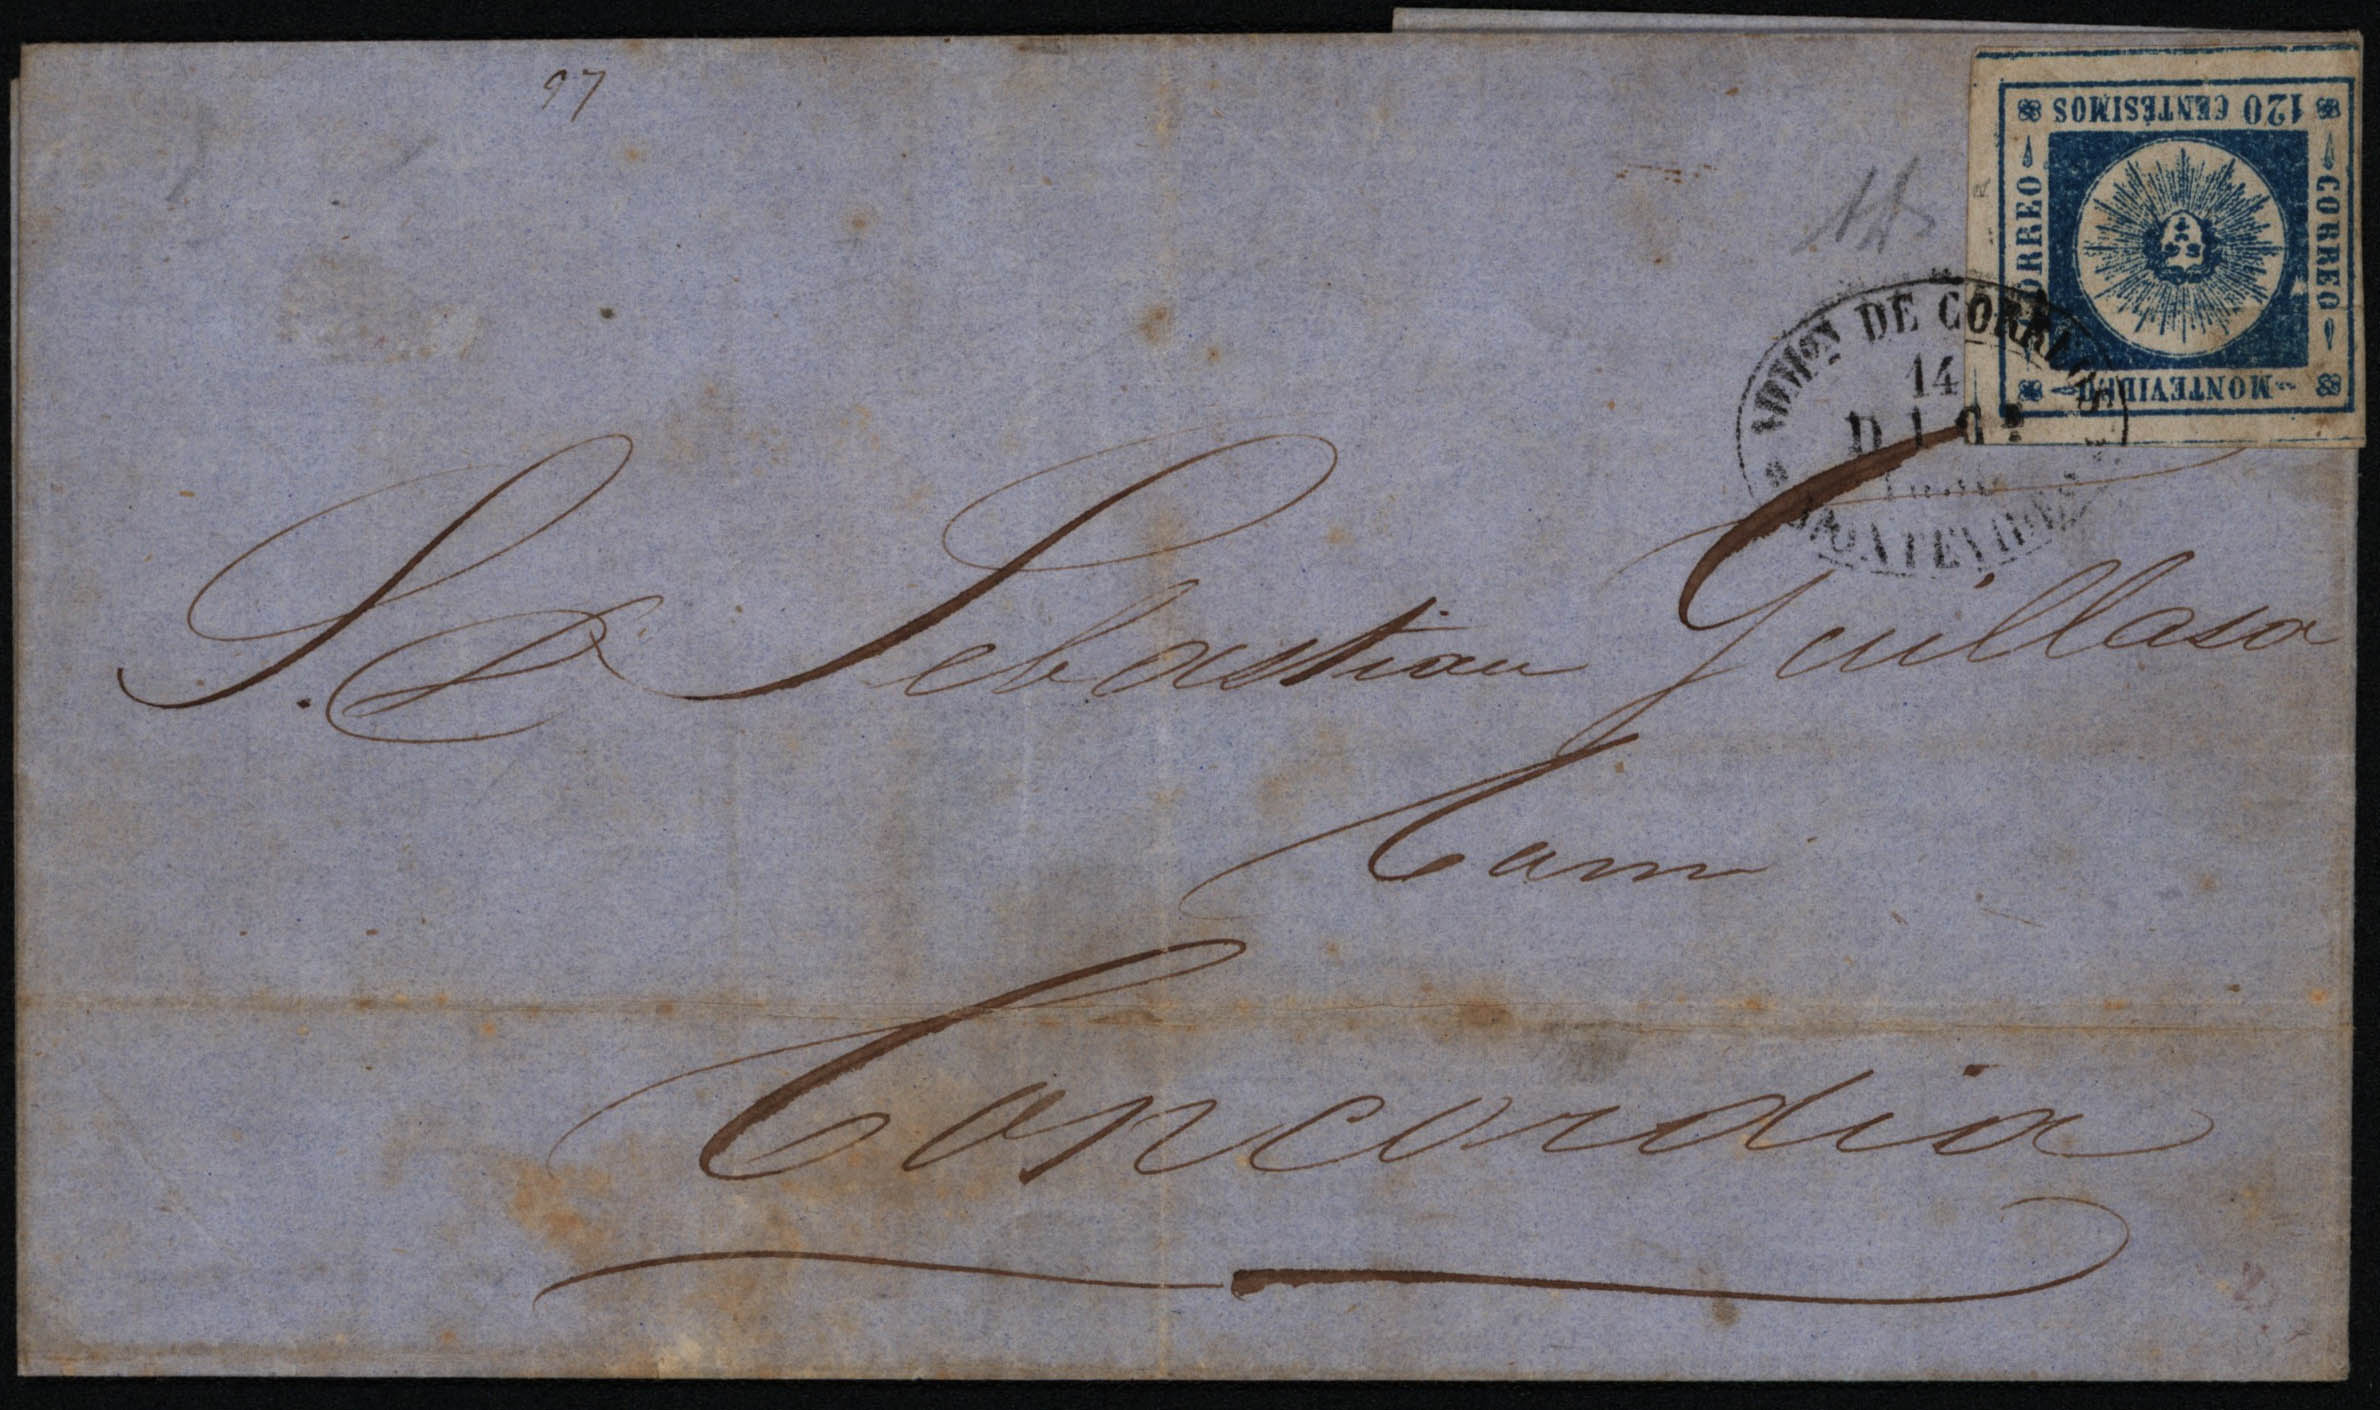 97
120 CENTÉSIMOS
CORREO
CORREO
MONTEVIDEO
ADMON DE CORREOS
14
DICE
MONTEVIDEO
S. D. Sebastian Guillaso
Concordia